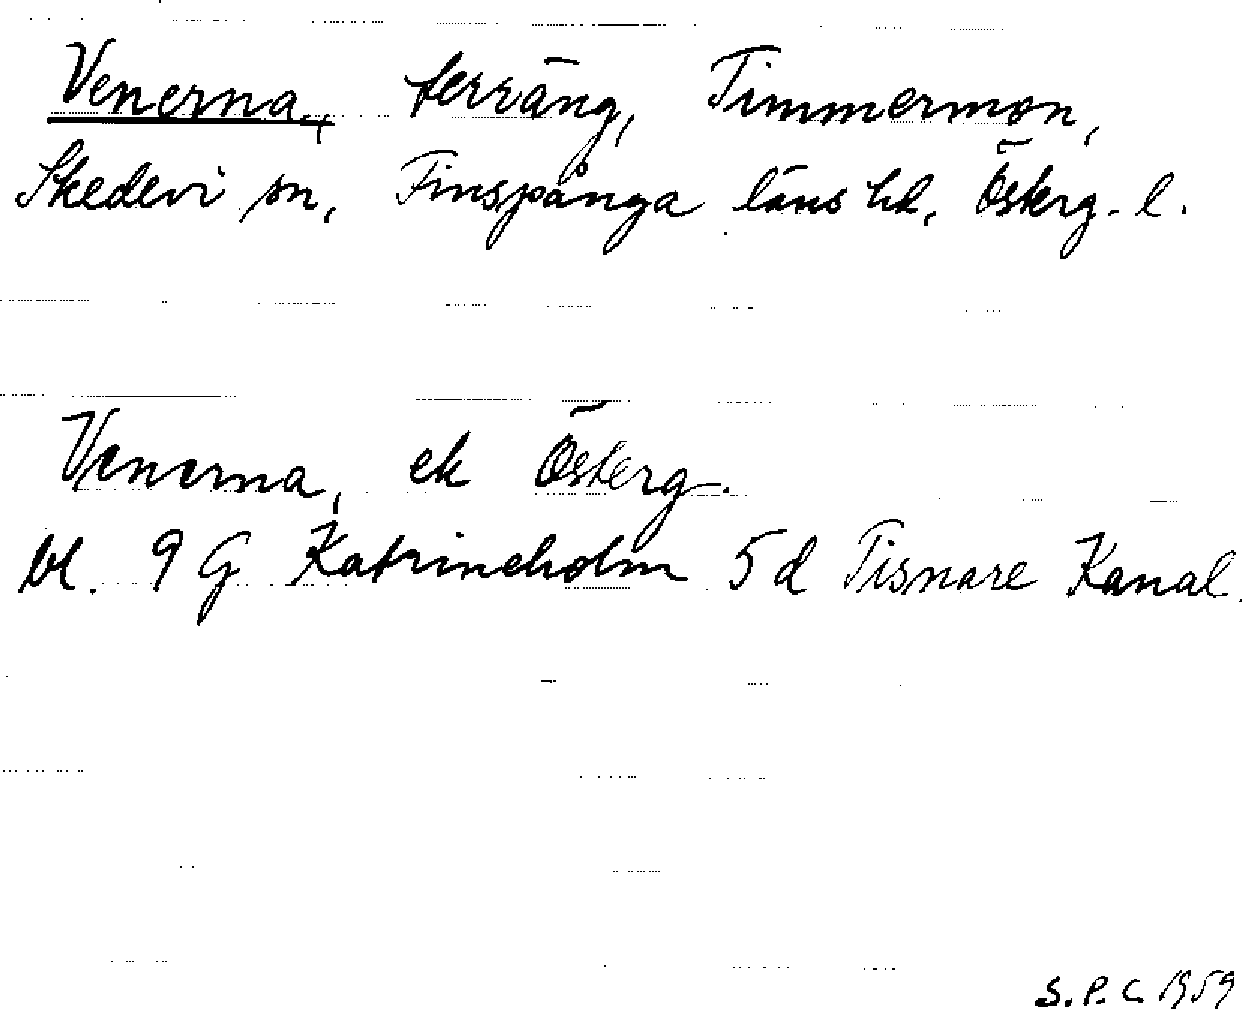 Venerna, terräng, Timmermon,
Skedevi sn, Finspånga läns hd, Österg. l.
Venerna, ek Österg.
bl. 9 G Katrineholm 5 d Tisnare Kanal.
S.P.C. 1959